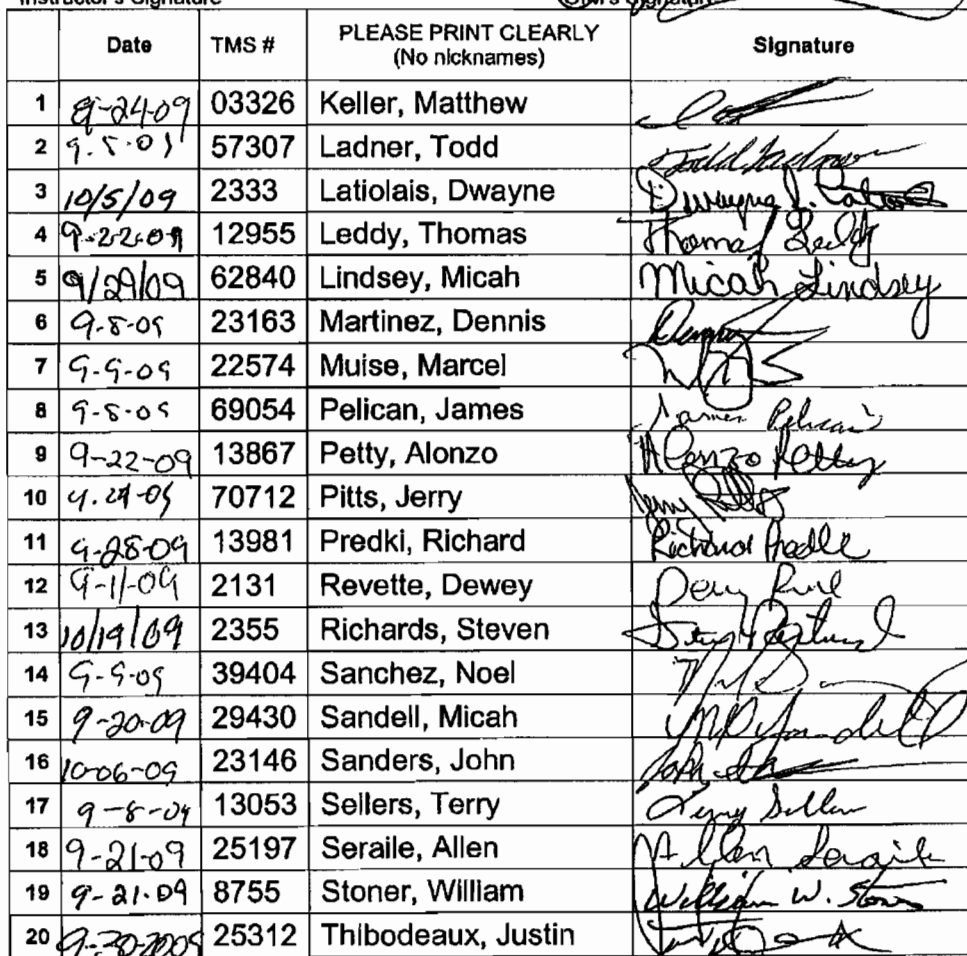 Instructor's Signature OIM's Signature
Date TMS # PLEASE PRINT CLEARLY Signature
(No nicknames)
1 9-24-09 03326 Keller, Matthew
2 57307 Ladner, Todd Todd Ladner
3 10/5/09 2333 Latiolais, Dwayne Dwayne J.
4 9-22-09 12955 Leddy, Thomas Thomas Leddy
5 9/29/09 62840 Lindsey, Micah Micah Lindsey
6 9-8-09 23163 Martinez, Dennis Dennis
7 9-9-09 22574 Muise, Marcel
8 9-8-09 69054 Pelican, James James Pelican
9 9-22-09 13867 Petty, Alonzo Alonzo Petty
10 70712 Pitts, Jerry Jerry Pitts
11 9-28-09 13981 Predki, Richard Richard Predki
12 9-11-09 2131 Revette, Dewey
13 10/19/09 2355 Richards, Steven
14 9-9-09 39404 Sanchez, Noel
15 9-20-09 29430 Sandell, Micah
16 10-06-09 23146 Sanders, John John
17 9-8-09 13053 Sellers, Terry Terry Sellers
18 9-21-09 25197 Seraile, Allen Allen Seraile
19 9-21-09 8755 Stoner, William William W. Stoner
20 9-30-2009 25312 Thibodeaux, Justin